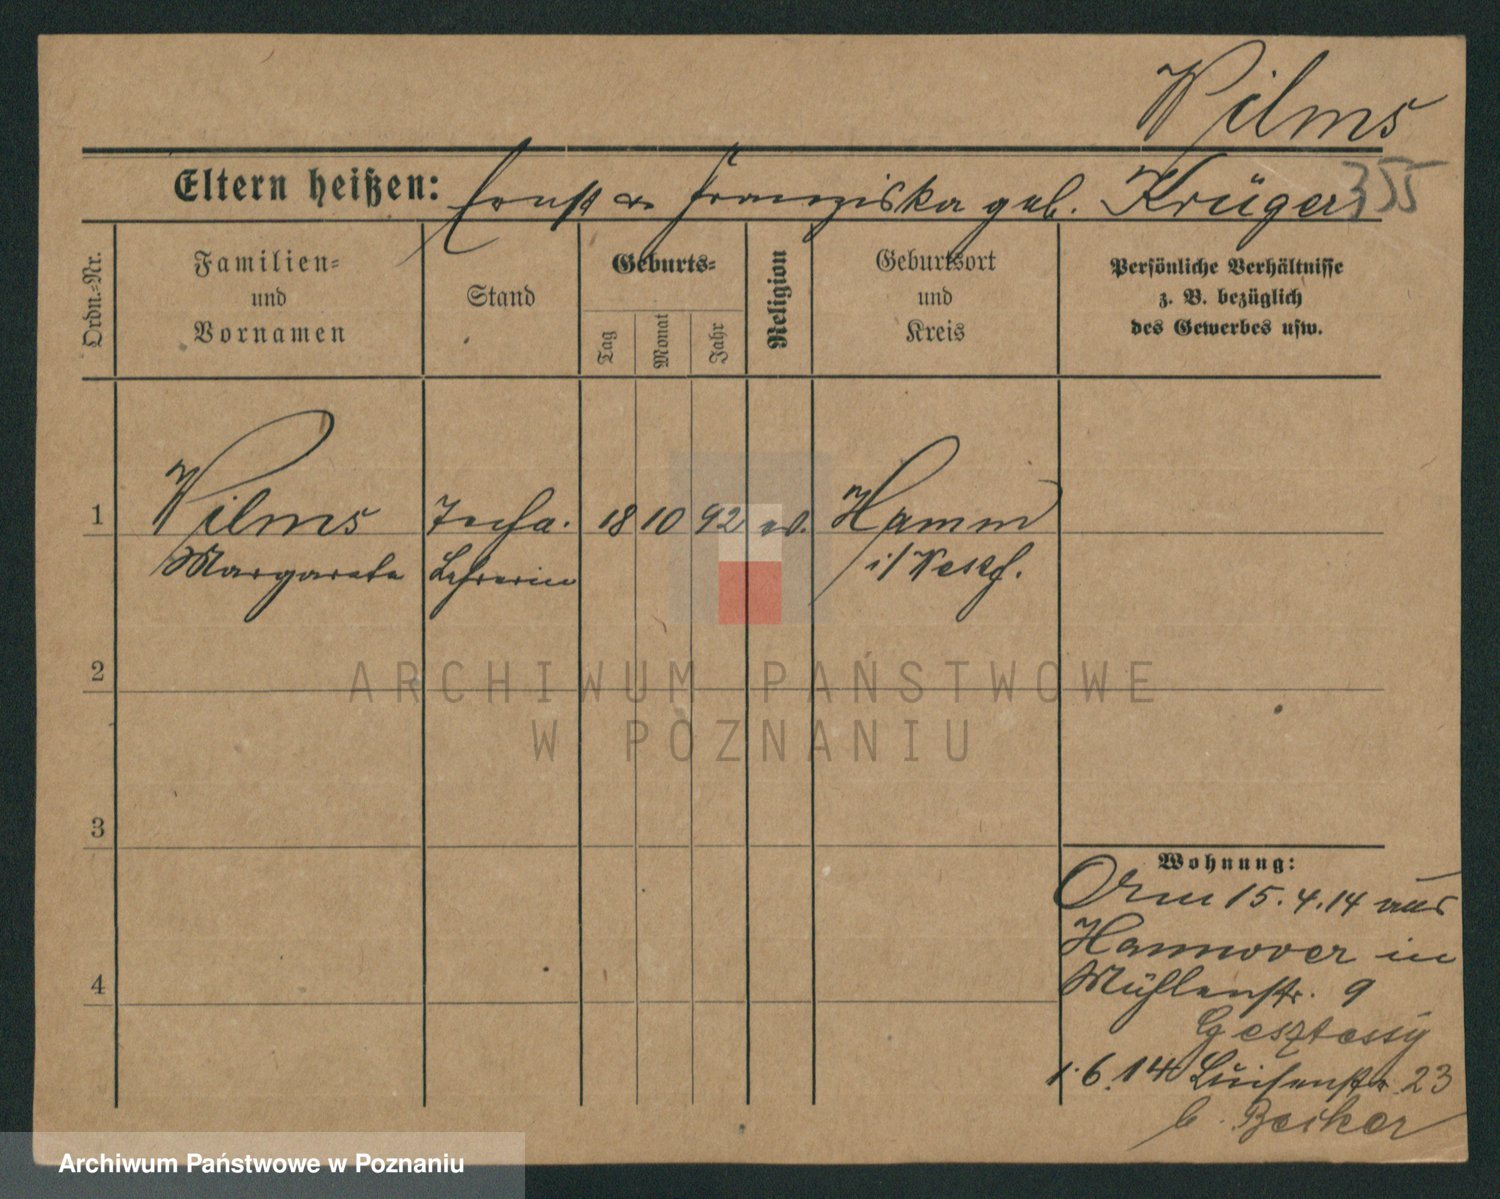 Wilms
Eltern heißen: Ernst u. Franziska geb. Krüger 355
Ordn.-Nr.
Familien-
und
Vornamen
Stand
Geburts-
Tag
Monat
Jahr
Religion
Geburtsort
und
Kreis
Persönliche Verhältnisse
z. B. bezüglich
des Gewerbes usw.
1 Wilms 18 10 92 ev. Hamm
Margarete Lehrerin i/Westf.
2
ARCHIWUM PAŃSTWOWE
W POZNANIU
3
Wohnung:
15.4.14 aus
Hannover in
4 Mühlenstr. 9
1.6.14 Luisenstr. 23
b. Becker
Archiwum Państwowe w Poznaniu